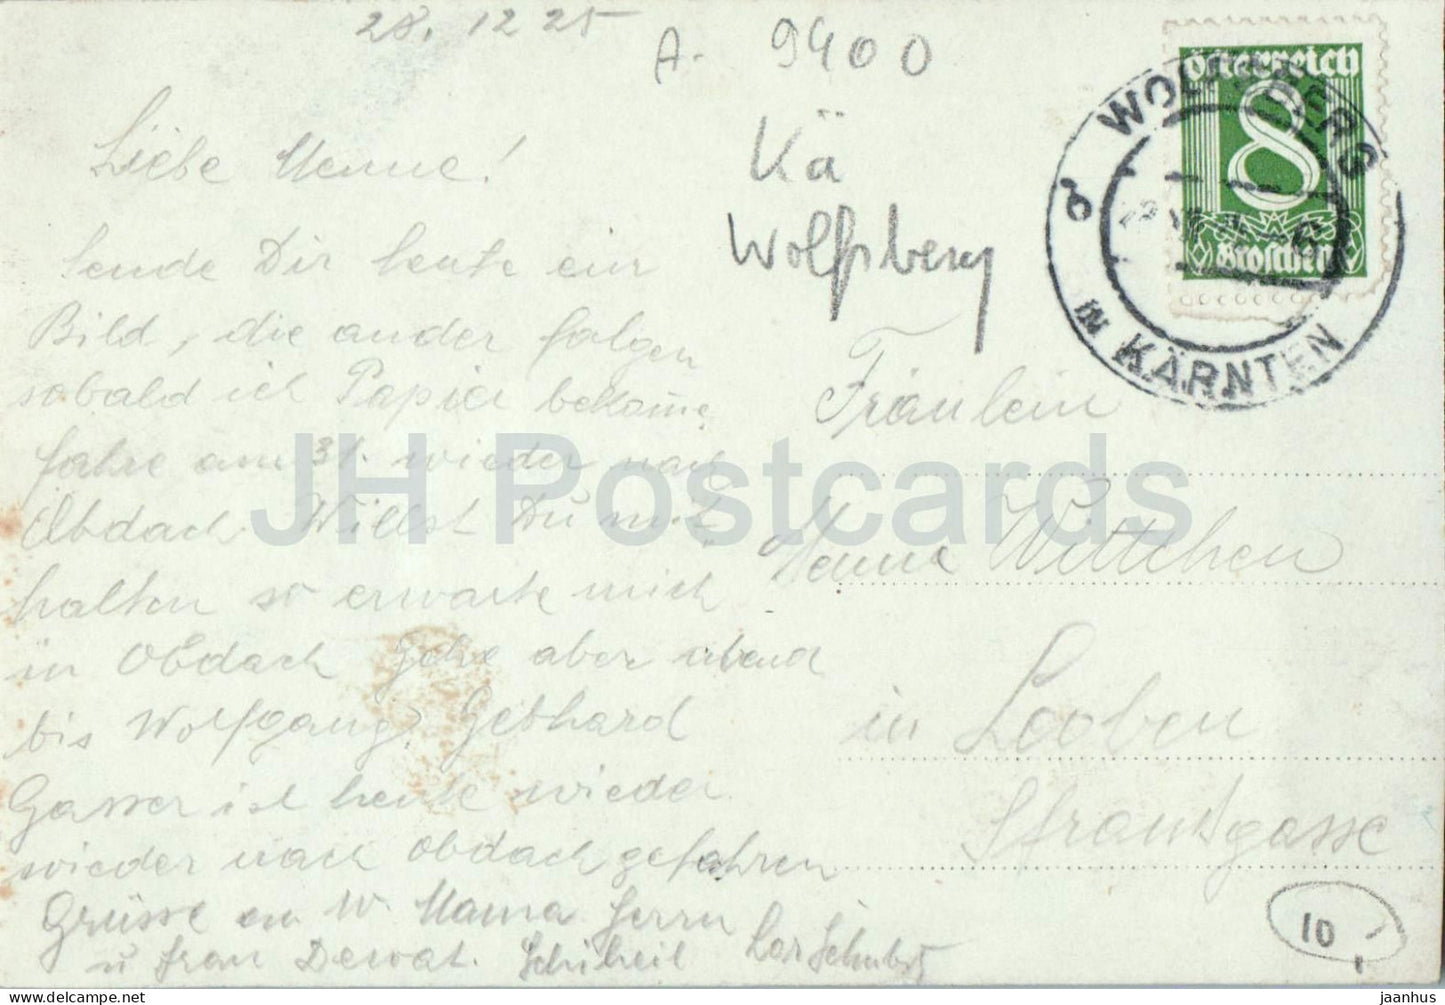 28. 12 25
A- 9400
Kä
Wolfsberg
Österreich
8
Groschen
WOLFSBERG
IN KÄRNTEN
Liebe Menne!
sende Dir heute ein
Bild, die ander folgen
sobald ich Papier bekome
fahre am 31. wieder nach
Obdach Willst Du mit
halten so erwarte mich
in Obdach Gehe aber
bis Wolfgang Gebhard
Gasser ist heute wieder
wieder nach Obdach gefahren
Grüsse an W. Mama Herrn
u Frau Schiheil
Fräulein
Menne Wittchen
in Leoben
gasse
10
JH Postcards
jaanhus - delcampe.net